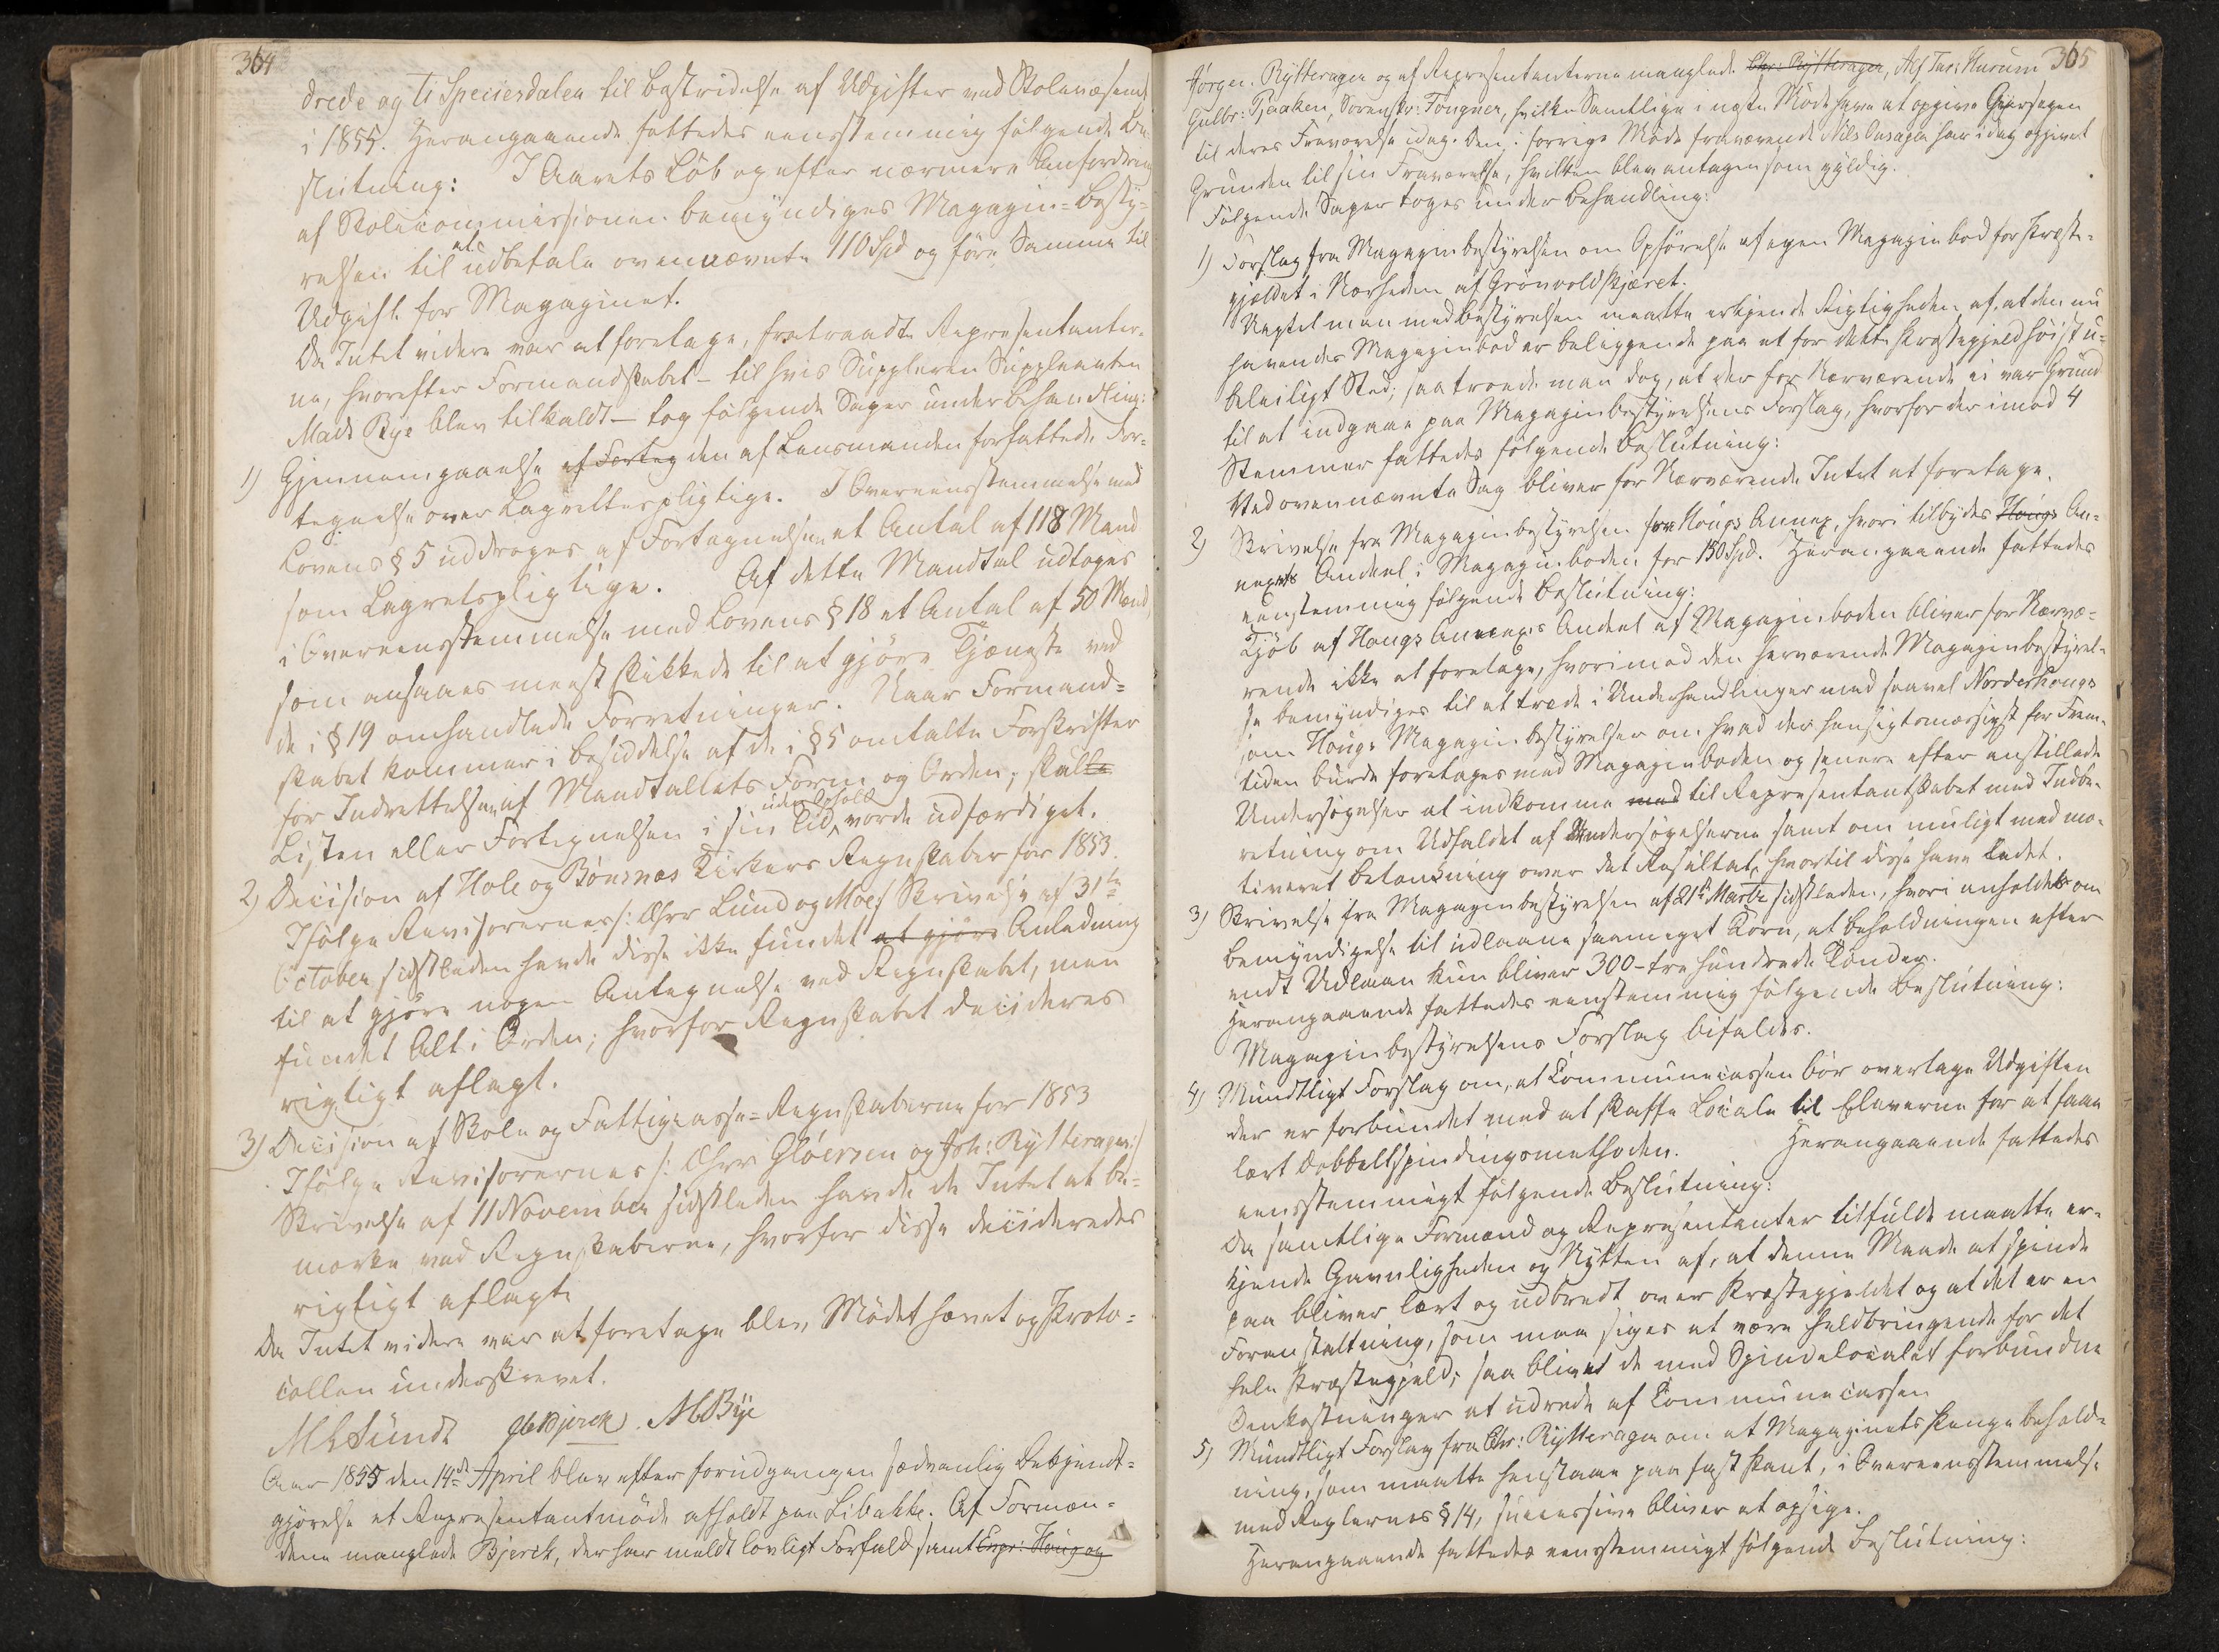 364
drede og ti Speciesdaler til Bestridelse af Udgifter ved Skolevæsenet
i 1855. Herangaaende fattedes eensstemmig følgende Be-
slutning: I Aarets Løb og efter nærmere Anfordring
af Skolecommissionen bemyndiges Magazin-Besty-
relsen til at udbetale ovennævnte 110 Spd og føre Samme til
Udgift for Magazinet.
Da Intet videre var at foretage, fratraadte Repræsentanter-
ne, hvorefter Formandskabet – til hvis Suppleren Suppleanten
Mads Bye blev tilkaldt – tog følgende Sager under Behandling:
1) Gjennemgaaelse af Forteg den af Lensmanden forfattede For-
tegnelse over Lagrettespligtige. I Overeensstemmelse med
Lovens § 5 uddroges af Fortegnelsen et Antal af 118 Mand
som Lagretspligtige. Af dette Mandtal udtoges
i Overeensstemmelse med Lovens § 18 et Antal af 50 Mænd,
som ansaaes meest skikkede til at gjøre Tjeneste ved
de i § 19 omhandlede Forretninger. Naar Formand-
skabet kommer i Besiddelse af de i § 5 omtalte Forskrifter
for Indrettelsen af Mandtallets Form og Orden, skulle
Listen eller Fortegnelsen i sin Tid uden Ophold vorde udfærdiget.
2) Decision af Hole og Bønsnæs Kirkers Regnskaber for 1853.
Ifølge Revisorernes /: DHrr Lund og Moe :/ Skrivelse af 31te
October sidstleden havde disse ikke fundet at gjøre Anledning
til at gjøre nogen Antegnelse ved Regnskabet, men
fundet Alt i Orden; hvorfor Regnskabet decideres
rigtigt aflagt.
3) Decision af Skole og Fattigcasse-Regnskaberne for 1853
Ifølge Revisorernes /: DHrr Gløersen og Joh: Rytterager :/
Skrivelse af 11 November sidstleden havde de Intet at be-
mærke ved Regnskaberne, hvorfor disse decideredes
rigtigt aflagte
Da Intet videre var at foretage blev Mødet hævet og Proto-
collen underskrevet.
Sundt Bjerck. M Bye
Aar 1855 den 14de April blev efter forudgangen sædvanlig Bekjendt-
gjørelse et Repræsentantmøde afholdt paa Libakke. Af Formæn-
dene manglede Bjerck, der har meldt lovligt Forfald samt Engr: Houg og
365
Jørgen Rytterager og af Repræsentanterne manglede Chr: Rytterager, Alf Tur: Hurum
Gulbr: Gaaken, Soren Tongner, hvilke Samtlige i næste Møde have at opgive Grunden
til deres Fraværelse idag. Den i forrige Møde fraværende Nils Onsager har idag opgivet
Grunden til sin Fraværelse, hvilken blev antagen som gyldig.
Følgende Sager toges under Behandling:
1) Forslag fra Magazinbestyrelsen om Opførelse af egen Magazinbod for Præste-
gjeldet i Nærheden af Grønvoldskjæret.
Uagtet man med Bestyrelsen maatte erkjende Rigtigheden af, at den nu
havendes Magazinbod er beliggende paa et for dette Præstegjeld høist u-
beleiligt Sted; saa troede man dog, at der for Nærværende ei var Grund
til at indgaae paa Magazinbestyrelsens Forslag, hvorfor der imod 4
Stemmer fattedes følgende Beslutning:
Ved ovennævnte Sag bliver for Nærværende Intet at foretage.
2) Skrivelse fra Magazinbestyrelsen for Hougs Annex, hvori tilbydes Hougs An-
nexets Andeel i Magazinboden for 150 Spd. Herangaaende fattedes
eenstemmig følgende Beslutning:
Kjøb af Hougs Annexes Andeel af Magazinboden bliver for Nærvæ-
rende ikke at foretage, hvorimod den herværende Magazinbestyrel-
se bemyndiges til at træde i Underhandlinger med saavel Norderhougs
som Hougs Magazinbestyrelser om hvad der hensigtsmæssigst for Frem-
tiden burde foretages med Magazinboden og senere efter anstillede
Undersøgelser at indkomme med til Repræsentantskabet med Indbe-
retning om Udfaldet af Undersøgelserne samt om muligt med mo-
tiveret Betænkning over det Resultat, hvortil disse have ledet.
3) Skrivelse fra Magazinbestyrelsen af 21de Marts sidstleden, hvori anholdes om
Bemyndigelse til udlaane saameget Korn, at Beholdningen efter
endt Udlaan kun bliver 300 – tre hundrede Tønder.
Herangaaende fattedes eenstemmig følgende Beslutning:
Magazinbestyrelsens Forslag bifaldes.
4) Mundtligt Forslag om, at Communecassen bør overtage Udgiften
der er forbundet med at skaffe Locale til Eleverne for at faae
lært Dobbeltspindingsmethoden. Herangaaende fattedes
eensstemmigt følgende Beslutning:
Da samtlige Formænd og Repræsentanter tilfulde maatte er-
kjende Gavnligheden og Nytten af, at denne Maade at spinde
paa bliver lært og udbredt over Præstegjeldet og at det er en
Foranstaltning, som maa siges at være heldbringende for det
hele Præstegjeld; saa bliver de med Spindelocalet forbundne
Omkostninger at udrede af Communecassen
5) Mundtligt Forslag fra Chr: Rytterager om at Magazinets Pengebehold-
ning, som maatte henstaae paa fast Pant, i Overeensstemmelse
med Reglernes § 14, successive bliver at opsige.
Herangaaende fattedes eensstemmigt følgende Beslutning: